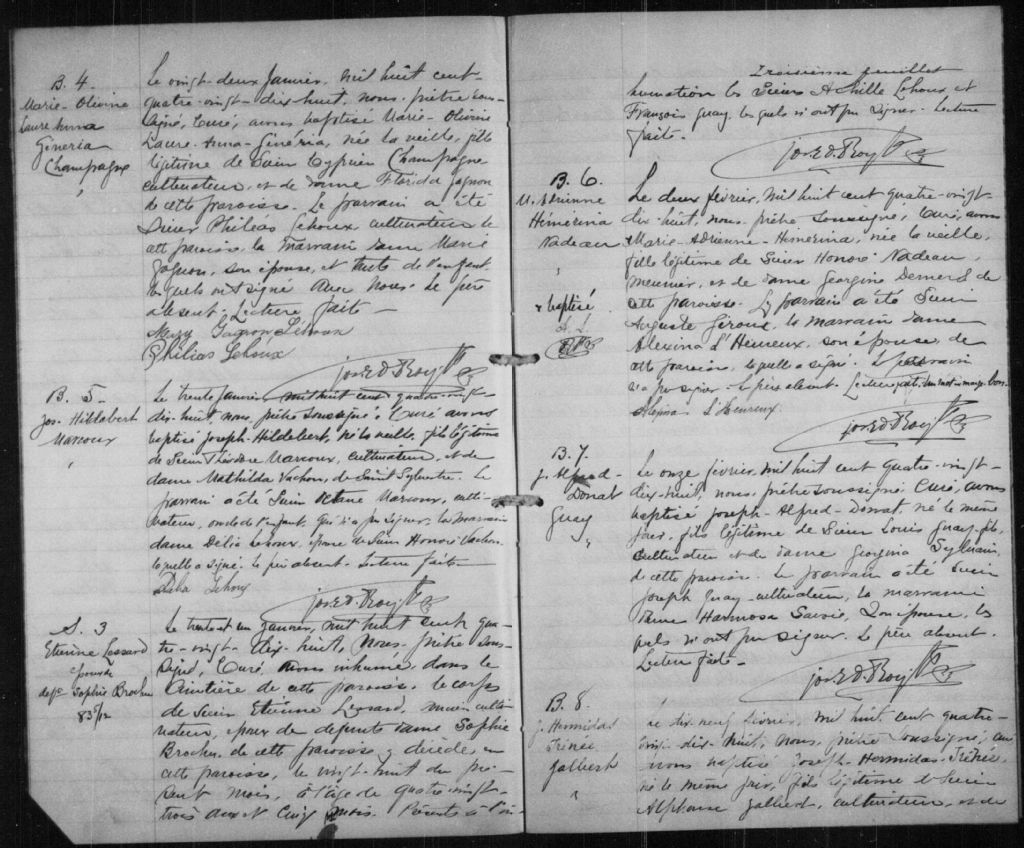 B. 4.
Marie-Olivine
Laure Anna
Généria
Champagne
Le vingt-deux Janvier, mil huit cent-
quatre-vingt-dix-huit, nous, prêtre sous-
signé, Curé, avons baptisé Marie-Olivine
Laure-Anna-Généria, née la veille, fille
légitime de Sieur Cyprien Champagne
cultivateur, et de dame Florida Gagnon
de cette paroisse. Le parrain a été
Sieur Philéas Lehoux, cultivateur de
cette paroisse, la marraine dame Marie
Gagnon, son épouse, et tante de l'enfant,
lesquels ont signé avec nous. Le père
absent. Lecture faite -
Mary Gagnon Lehoux
Philias Lehoux
Jos. E. D. Roy Ptre
B. 5-
Jos. Hildebert
Marcoux
Le trente Janvier mil huit cent quatre-vingt-
dix-huit, nous, prêtre soussigné, Curé avons
baptisé Joseph-Hildebert, né la veille, fils légitime
de Sieur Théodore Marcoux, cultivateur, et de
dame Mathilda Vachon, de Saint Sylvestre. Le
parrain a été Sieur Octave Marcoux, culti-
vateur, oncle de l'enfant, qui n'a pu signer, la marraine
dame Délia Lehoux, épouse de Sieur Honoré Vachon,
laquelle a signé. Le père absent. Lecture faite-
Délia Lehoux
Jos. E. D. Roy Ptre
S. 3
Etienne Lessard
époux de
Sophie Brochu
83 5/12
Le trente et un Janvier, mil huit cent qua-
tre-vingt-dix-huit, Nous, Prêtre sous-
signé, Curé, avons inhumé dans le
Cimetière de cette paroisse, le corps
de Sieur Etienne Lessard, ancien culti-
vateur, époux de defunte dame Sophie
Brochu, de cette paroisse, y décédé, en
cette paroisse, le vingt-huit du pré-
sent mois, à l'âge de quatre-vingt-
trois ans et cinq mois. Présents à l'in-
Troisième feuillet
humation les Sieurs Achille Lehoux et
François Guay, lesquels n'ont pu signer. Lecture
faite.
Jos. E. D. Roy Ptre
B. 6.
M. Adrienne
Hémérina
Nadeau
+ baptisé
Le deux février, mil huit cent quatre-vingt
dix-huit, nous, prêtre soussigné, Curé, avons
+ Marie-Adrienne-Hémérina, née la veille,
fille légitime de Sieur Honoré Nadeau,
meunier, et de dame Georgina Demers de
cette paroisse. Le parrain a été Sieur
Auguste Giroux, la marraine dame
Alexina L'Heureux, son épouse, de
cette paroisse, laquelle a signé. Le parrain
n'a pu signer. Le père absent. Lecture faite, un mot en marge bon.
Alexina L'Heureux.
Jos. E. D. Roy Ptre
B. 7.
J. Alfred-
Donat
Guay
Le onze février, mil huit cent quatre-vingt-
dix-huit, nous, prêtre soussigné Curé, avons
baptisé Joseph-Alfred-Donat, né le même
jour, fils légitime de Sieur Louis Guay, fils,
cultivateur et de dame Georgina Sylvain,
de cette paroisse. Le parrain a été Sieur
Joseph Guay, cultivateur, la marraine
dame Hermosa Savoie, son épouse, les
quels n'ont pu signer. Le père absent.
Lecture faite-
Jos. E. D. Roy Ptre
B. 8.
J. Hermidas
Irénée
Jalbert
Le dix neuf février, mil huit cent quatre-
vingt-dix-huit, nous, prêtre soussigné, curé
avons baptisé Joseph-Hermidas-Irénée,
né le même jour, fils légitime de Sieur
Alphonse Jalbert, cultivateur, et de